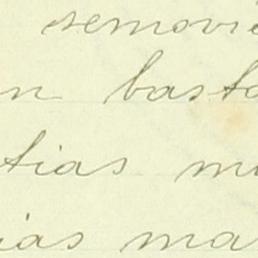 semovie
n basta
tias m
ias ma